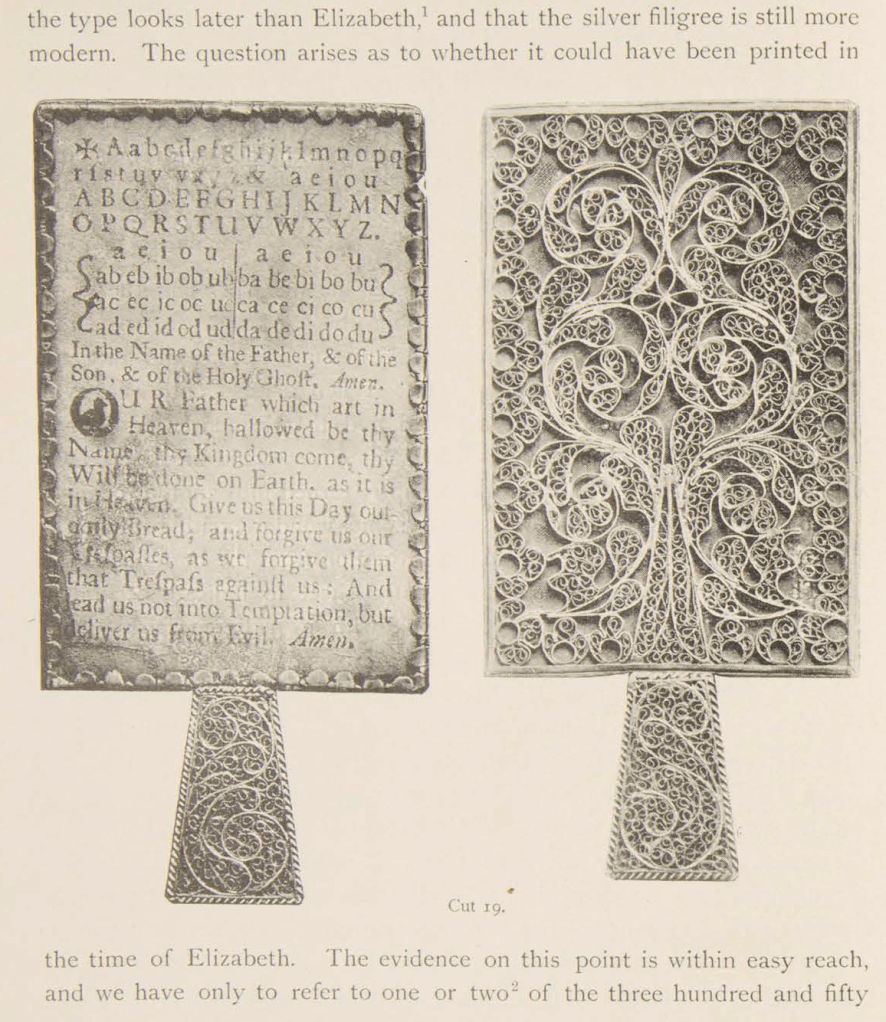 the type looks later than Elizabeth,¹ and that the silver filigree is still more
modern. The question arises as to whether it could have been printed in
✠ A a b c d e f g h i j k l m n o p q
r ſ s t u v w x y z & a e i o u
A B C D E F G H I J K L M N
O P Q R S T U V W X Y Z.
a e i o u | a e i o u
ab eb ib ob ub ba be bi bo bu
ac ec ic oc uc ca ce ci co cu
ad ed id od ud da de di do du
In the Name of the Father, & of the
Son, & of the Holy Ghoſt. Amen.
OUR Father which art in
Heaven, hallowed be thy
Name, thy Kingdom come, thy
Will be done on Earth, as it is
in Heaven. Give us this Day our
daily Bread; and forgive us our
Treſpaſſes, as we forgive them
that Treſpaſs againſt us: And
lead us not into Temptation, but
deliver us from Evil. Amen.
Cut 19.
the time of Elizabeth. The evidence on this point is within easy reach,
and we have only to refer to one or two² of the three hundred and fifty